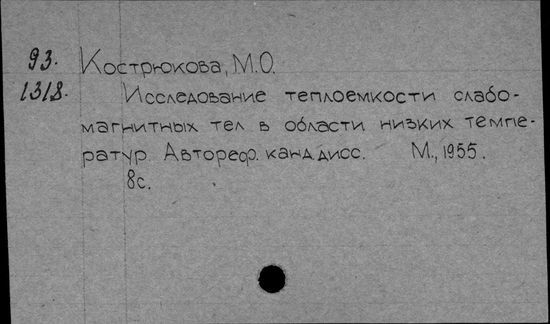 93.
1318.
Кострюкова, М.О.
Исследование теплоемкости слабо-
магнитных тел в области низких темпе-
ратур. Автореф. канд дисс. М., 1955.
8с.